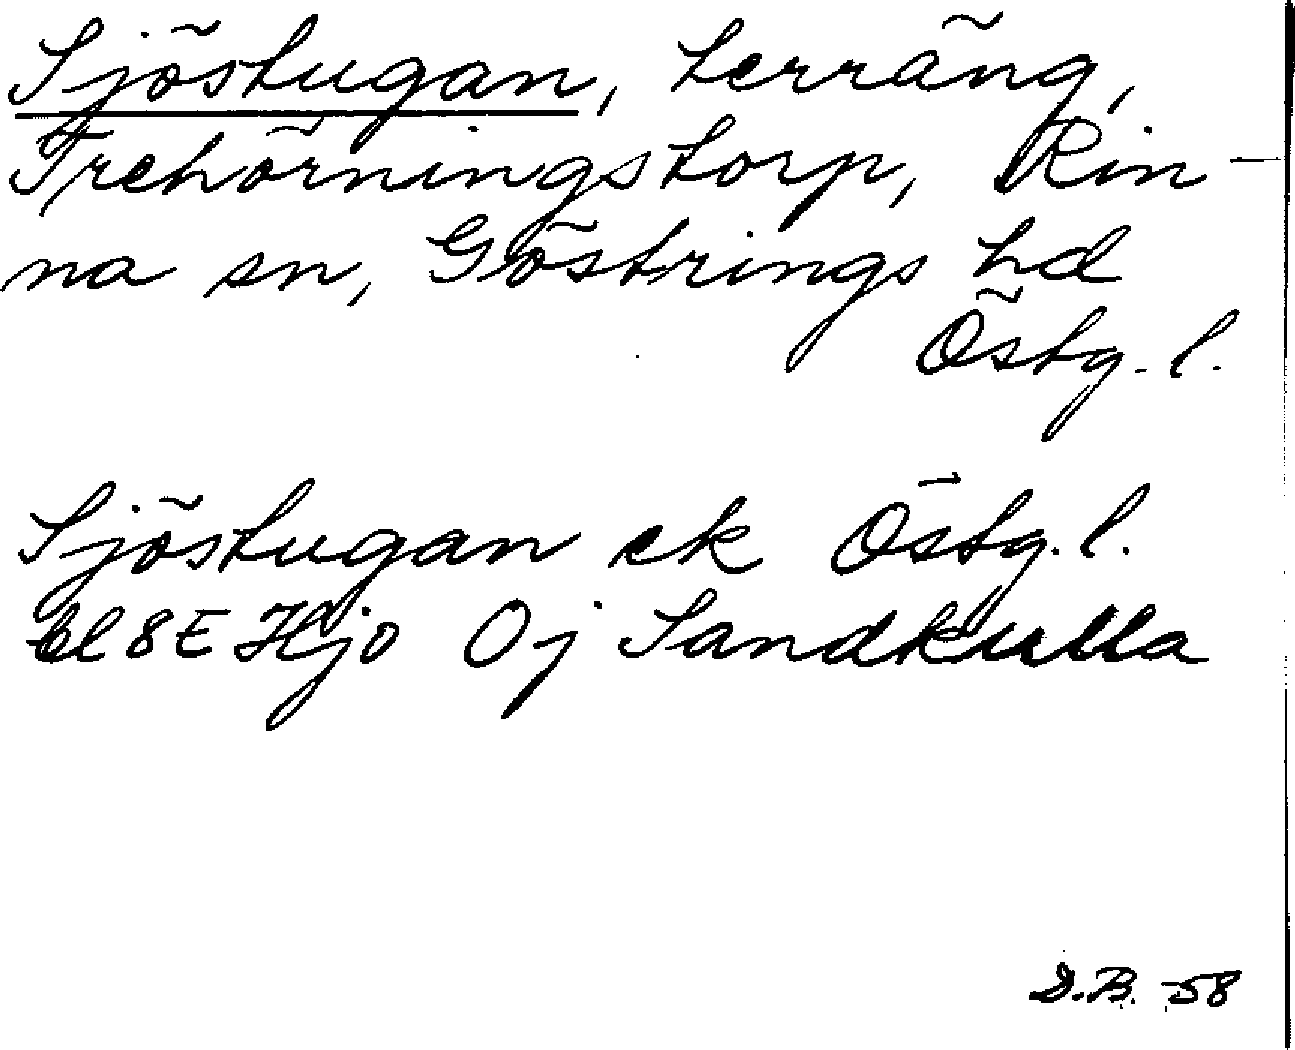 Sjöstugan, terräng,
Trehörningstorp, Rin-
na sn, Göstrings hd
Östg. l.
Sjöstugan ek Östg. l.
bl 8E Hjo Oj Sandkulla
D.B. 58